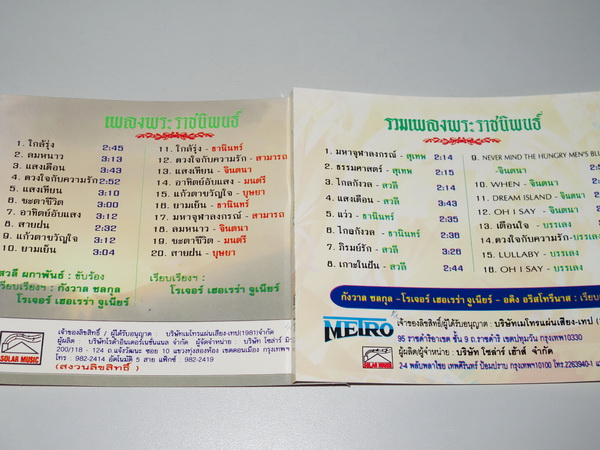 เพลงพระราชนิพนธ์
1. ใกล้รุ่ง 2:45
2. ลมหนาว 3:13
3. แสงเดือน 3:43
4. ดวงใจกับความรัก 2:52
5. แสงเทียน 3:10
6. ชะตาชีวิต 3:00
7. อาทิตย์อับแสง 3:12
8. สายฝน 2:32
9. แก้วตาขวัญใจ 3:12
10. ยามเย็น 3:04
11. ใกล้รุ่ง - ธานินทร์
12. ดวงใจกับความรัก - สามารถ
13. แสงเทียน - จินตนา
14. อาทิตย์อับแสง - มนตรี
15. แก้วตาขวัญใจ - บุษยา
16. ยามเย็น - ธานินทร์
17. มหาจุฬาลงกรณ์ - สามารถ
18. ลมหนาว - จินตนา
19. ชะตาชีวิต - มนตรี
20. สายฝน - บุษยา
สวลี ผกาพันธ์ : ขับร้อง
เรียบเรียงฯ : กังวาล ชลกุล
โรเจอร์ เฮอเรร่า จูเนียร์
เรียบเรียงฯ :
โรเจอร์ เฮอเรร่า จูเนียร์
SOLAR MUSIC
เจ้าของลิขสิทธิ์ / ผู้ได้รับอนุญาต : บริษัทเมโทรแผ่นเสียง-เทป(1981)จำกัด
ผู้ผลิต : บริษัทโรต้าอินเตอร์เนชั่นแนล จำกัด ผู้จัดจำหน่าย : บริษัท โซล่าร์
200/118 - 124 ถ.แจ้งวัฒนะ ซอย 10 แขวงทุ่งสองห้อง เขตดอนเมือง กรุงเทพฯ
โทร : 982-2414 อัตโนมัติ 5 สาย แฟ็กซ์ 982-2419
(สงวนลิขสิทธิ์)
รวมเพลงพระราชนิพนธ์
1. มหาจุฬาลงกรณ์ - สุเทพ 2:14
2. ธรรมศาสตร์ - สุเทพ 2:15
3. ไกลกังวล - สวลี 2:14
4. แสงเดือน - สวลี 3:43
5. แว่ว - ธานินทร์ 2:35
6. ไกลกังวล - ธานินทร์ 2:36
7. ภิรมย์รัก - สวลี 3:28
8. เกาะในฝัน - สวลี 2:44
9. NEVER MIND THE HUNGRY MEN'S BLUES
- จินตนา
10. WHEN - จินตนา
11. DREAM ISLAND - จินตนา
12. OH I SAY - จินตนา
13. เตือนใจ - บรรเลง
14. ดวงใจกับความรัก - บรรเลง
15. LULLABY - บรรเลง
16. OH I SAY - บรรเลง
กังวาล ชลกุล - โรเจอร์ เฮอเรร่า จูเนียร์ - อดิง อริสโทรีนาส : เรียบ
METRO
เจ้าของลิขสิทธิ์/ผู้ได้รับอนุญาต : บริษัทเมโทรแผ่นเสียง-เทป
95 ราชดำริอาเขต ชั้น 9 ถ.ราชดำริ เขตปทุมวัน กรุงเทพฯ10330
SOLAR MUSIC
ผู้ผลิต/ผู้จำหน่าย : บริษัท โซล่าร์ เฮ้าส์ จำกัด
2-4 พลับพลาไชย เทพศิรินทร์ ป้อมปราบ กรุงเทพฯ10100 โทร.2263940-1